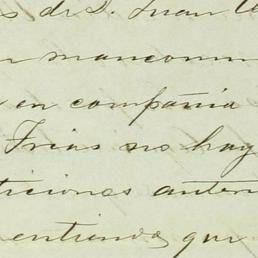 s de D. Juan
mancomun
en compañia
Frias no hay
ticiones anteri
entiende, que